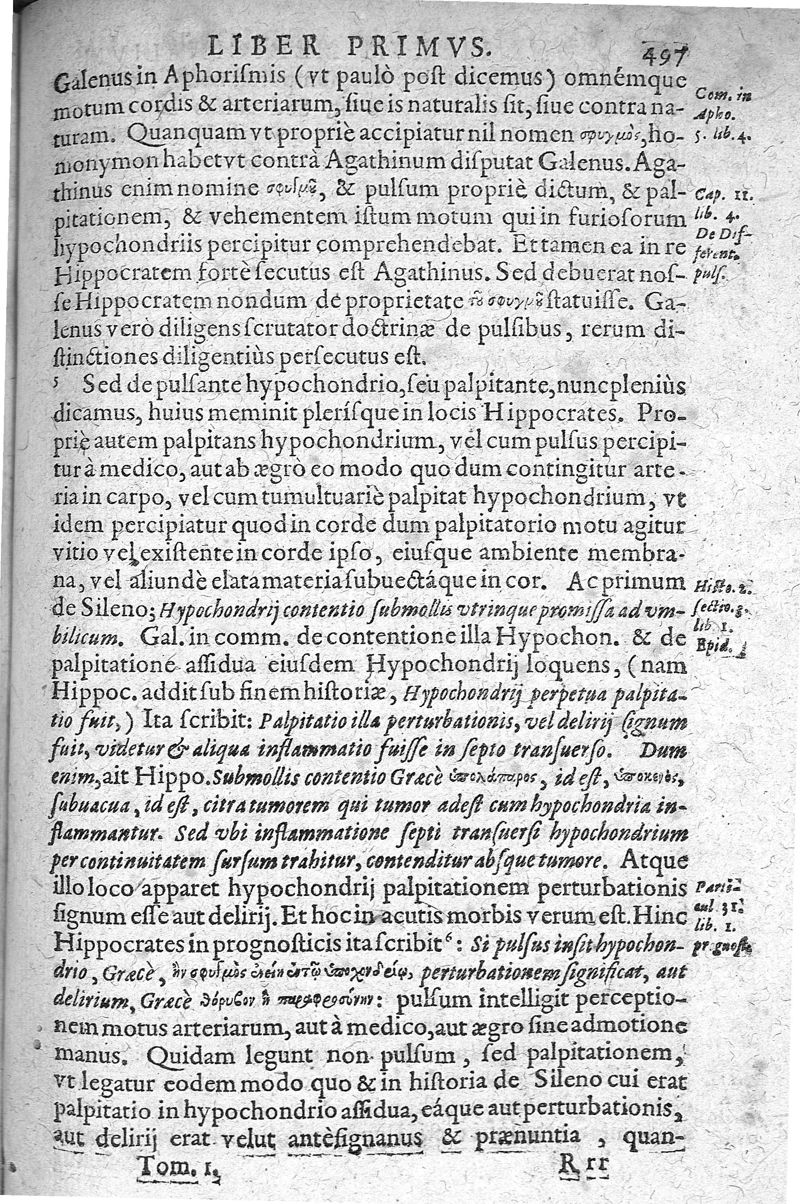 LIBER PRIMVS.
497
Galenus in Aphoriſmis (vt paulò poſt dicemus) omnémque
motum cordis & arteriarum, ſiue is naturalis ſit, ſiue contra na-
turam. Quanquam vt propriè accipiatur nil nomen σφυγμὸς, ho-
monymon habet vt contrà Agathinum diſputat Galenus. Aga-
thinus enim nomine σφυγμοῦ, & pulſum propriè dictum, & pal-
pitationem, & vehementem iſtum motum qui in furioſorum
hypochondriis percipitur comprehendebat. Et tamen ea in re
Hippocratem fortè ſecutus eſt Agathinus. Sed debuerat noſ-
ſe Hippocratem nondum de proprietate τοῦ σφυγμοῦ ſtatuiſſe. Ga-
lenus verò diligens ſcrutator doctrinæ de pulſibus, rerum di-
ſtinctiones diligentiùs perſecutus eſt.
5 Sed de pulſante hypochondrio, ſeu palpitante, nunc pleniùs
dicamus, huius meminit pleriſque in locis Hippocrates. Pro-
priè autem palpitans hypochondrium, vel cum pulſus percipi-
tur à medico, aut ab ægrò eo modo quo dum contingitur arte-
ria in carpo, vel cum tumultuariè palpitat hypochondrium, vt
idem percipiatur quod in corde dum palpitatorio motu agitur
vitio vel exiſtente in corde ipſo, eiuſque ambiente membra-
na, vel aliundè elata materia ſubuectáque in cor. Ac primum
de Sileno; Hypochondrij contentio ſubmollis vtrinque promiſſa ad vm-
bilicum. Gal. in comm. de contentione illa Hypochon. & de
palpitatione aſſidua eiuſdem Hypochondrij loquens, (nam
Hippoc. addit ſub finem hiſtoriæ, Hypochondrij perpetua palpita-
tio fuit,) Ita ſcribit: Palpitatio illa perturbationis, vel delirij ſignum
fuit, videtur & aliqua inflammatio fuiſſe in ſepto tranſuerſo. Dum
enim, ait Hippo. Submollis contentio Græcè ὑπολάπαρος, id eſt, ὑπόκενος,
ſubuacua, id eſt, citra tumorem qui tumor adeſt cum hypochondria in-
flammantur. Sed vbi inflammatione ſepti tranſuerſi hypochondrium
per continuitatem ſurſum trahitur, contenditur abſque tumore. Atque
illo loco apparet hypochondrij palpitationem perturbationis
ſignum eſſe aut delirij. Et hoc in acutis morbis verum eſt. Hinc
Hippocrates in prognoſticis ita ſcribit 6: Si pulſus inſit hypochon-
drio, Græcè, ἢν σφυγμὸς ἐνείη ἐν τῷ ὑποχονδρίῳ, perturbationem ſignificat, aut
delirium, Græcè θόρυβον ἢ παραφροσύνην: pulſum intelligit perceptio-
nem motus arteriarum, aut à medico, aut ægro ſine admotione
manus. Quidam legunt non pulſum, ſed palpitationem,
vt legatur eodem modo quo & in hiſtoria de Sileno cui erat
palpitatio in hypochondrio aſſidua, eáque aut perturbationis,
aut delirij erat velut antèſignanus & prænuntia, quan-
Tom. 1.
R rr
Com. in
Apho.
5. lib. 4.
Cap. 11.
lib. 4.
De Dif-
ferent.
pulſ.
Hiſto. 2.
ſectio. 3.
lib 1.
Epid.
Parti-
cul 31.
lib. 1.
prognoſt.